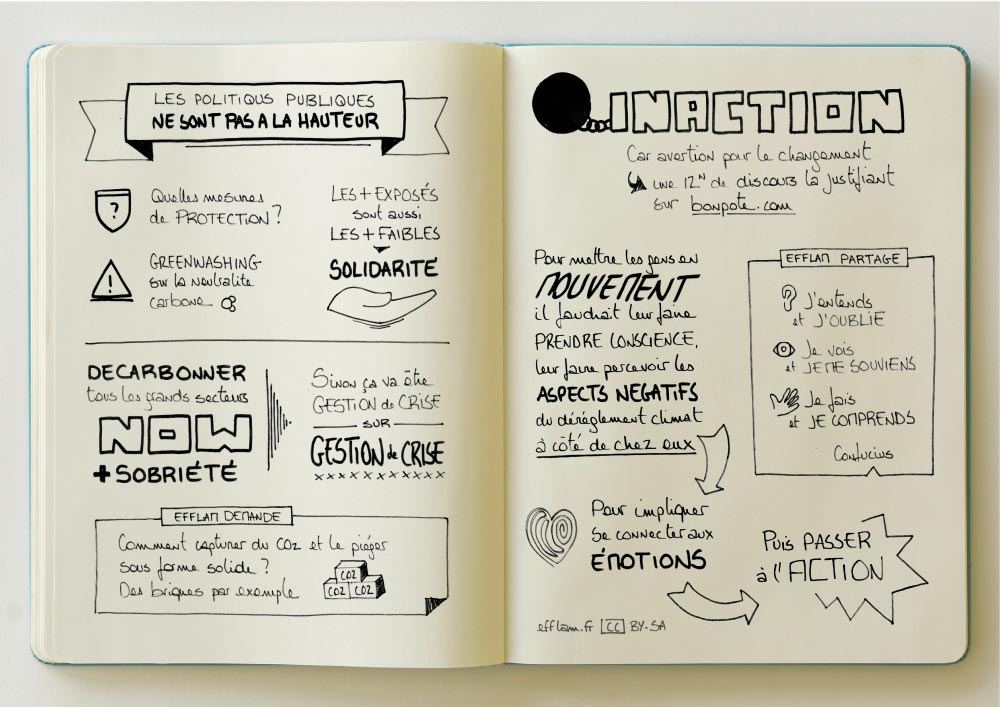 LES POLITIQUS PUBLIQUES
NE SONT PAS A LA HAUTEUR
?
Quelles mesures
de PROTECTION ?
GREENWASHING
sur la neutralite
carbone
LES + EXPOSÉS
sont aussi
LES + FAIBLES
SOLIDARITÉ
DECARBONNER
tous les grands secteurs
NOW
+ SOBRIÉTÉ
Sinon ça va être
GESTION de CRISE
SUR
GESTION de CRISE
xxxxxxxxxxxx
EFFLAM DEMANDE
Comment capturer du CO2 et le piéger
sous forme solide ?
Des briques par exemple
CO2
CO2 CO2
INACTION
Car avertion pour le changement
une 12N de discours la justifiant
sur bonpote.com
Pour mettre les gens en
MOUVEMENT
il faudrait leur faire
PRENDRE CONSCIENCE,
leur faire percevoir les
ASPECTS NEGATIFS
du déréglement climat
à côté de chez eux
EFFLAM PARTAGE
J'entends
et J'OUBLIE
Je vois
et JE ME SOUVIENS
Je fais
et JE COMPRENDS
Confucius
Pour impliquer
Se connecter aux
ÉMOTIONS
Puis PASSER
à l'ACTION
efflam.fr CC BY-SA